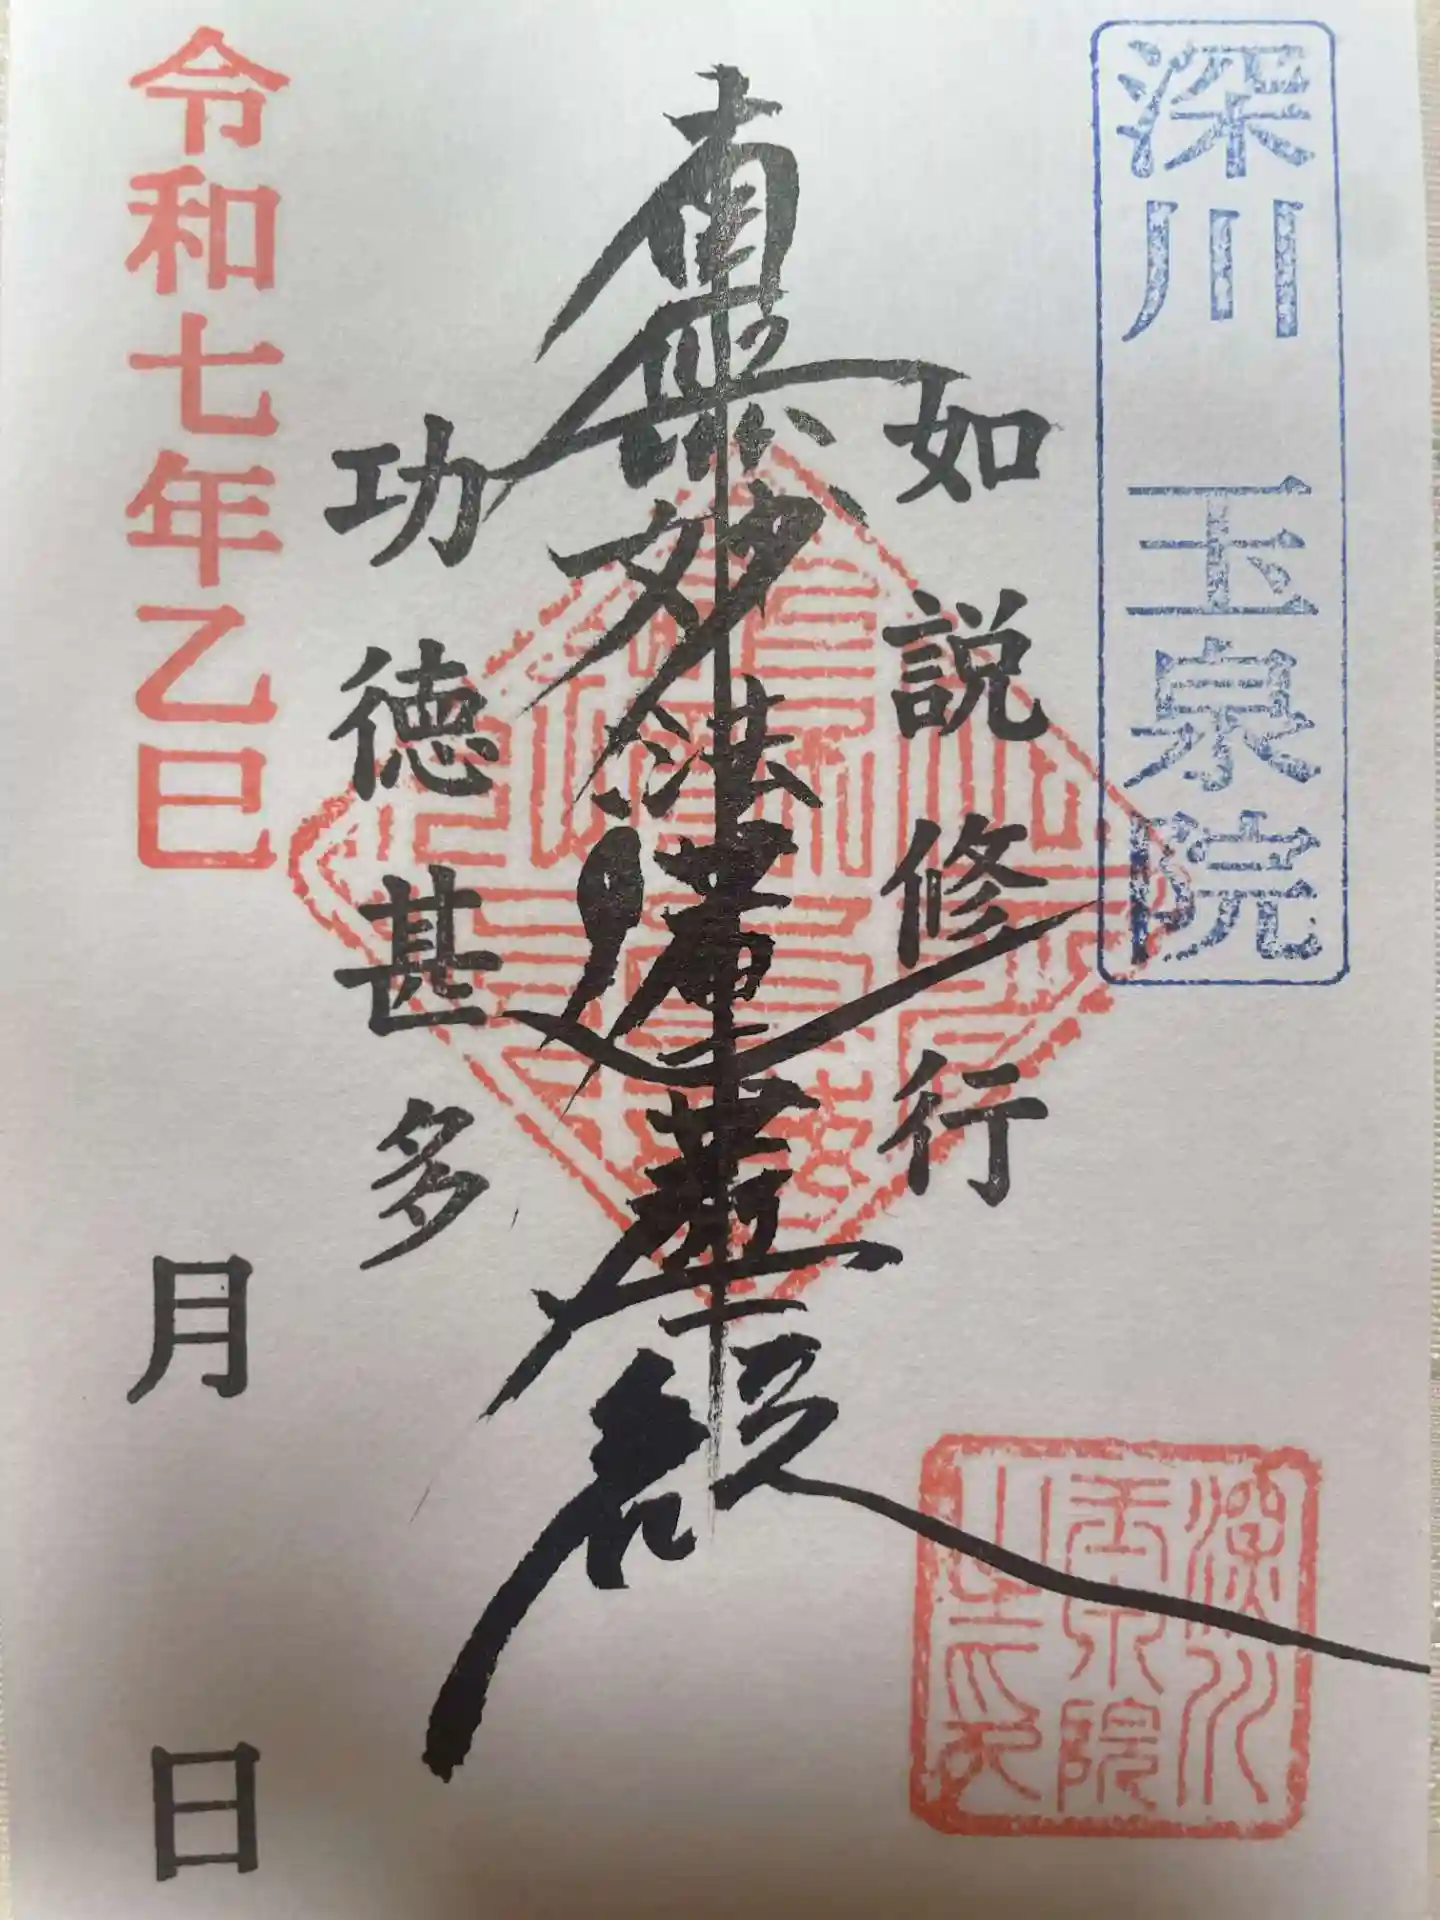 深川 玉泉院
如説修行
南無妙法蓮華経
功徳甚多
令和七年乙巳
月 日
深川
玉泉院
之印